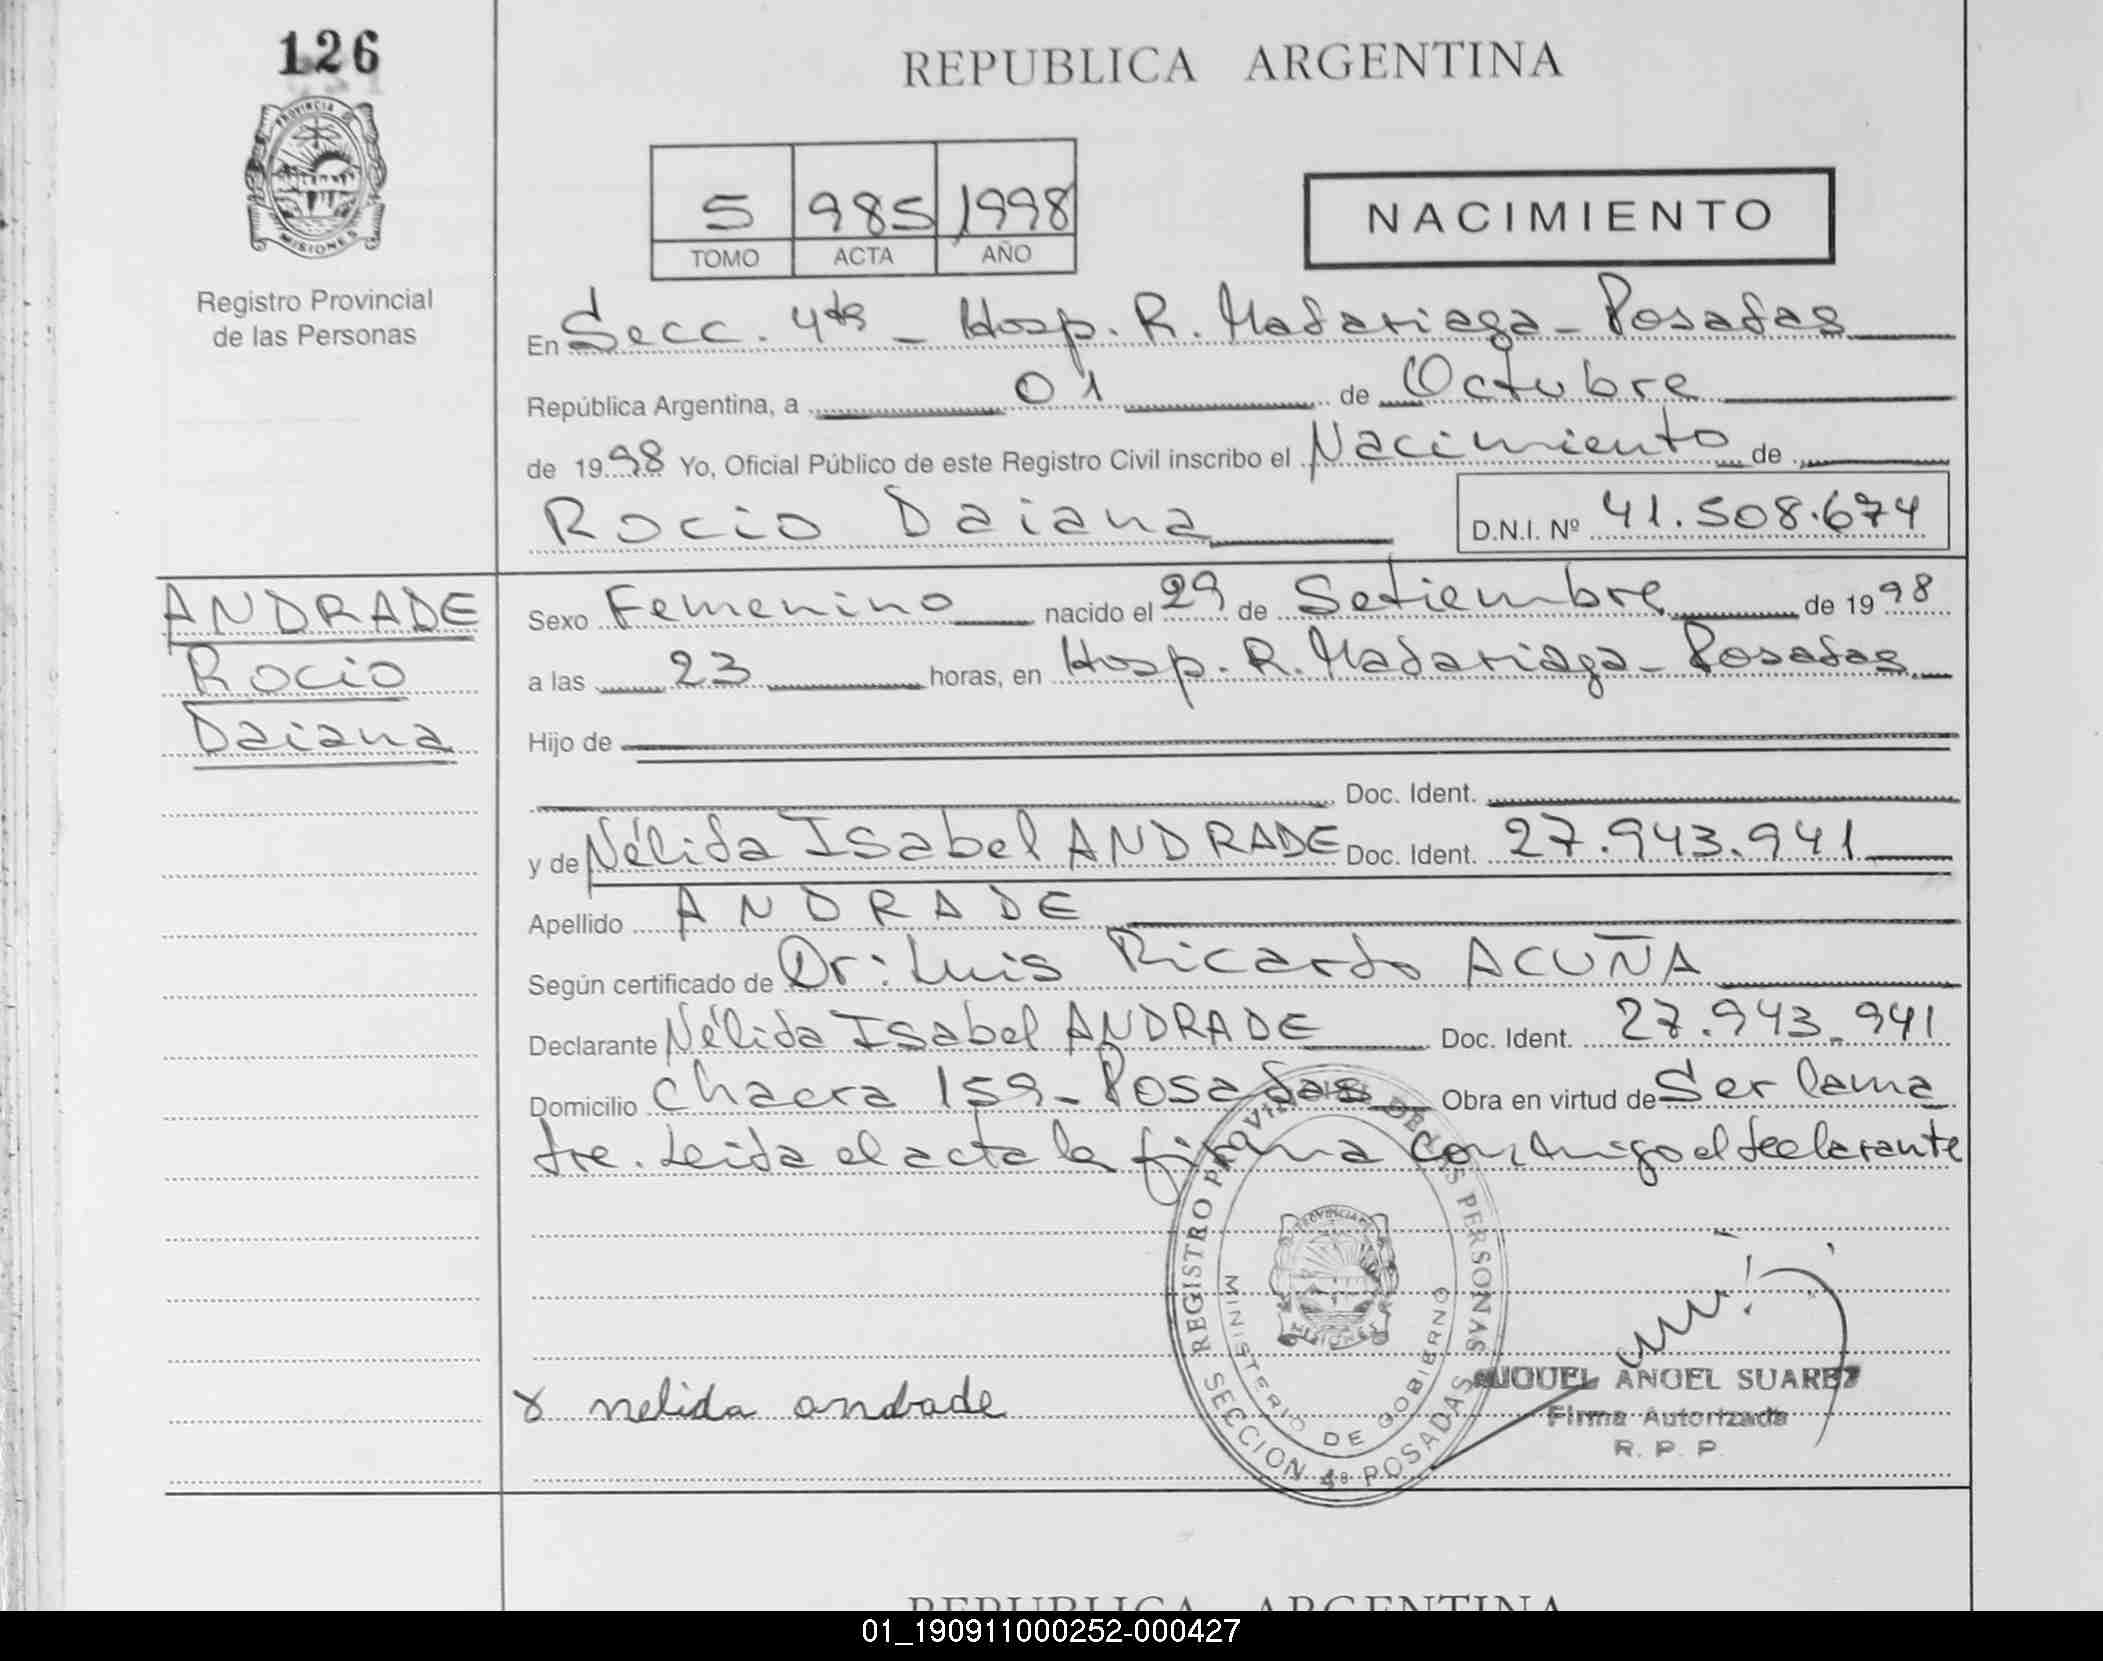 126
REPUBLICA ARGENTINA
PROVINCIA DE
MISIONES
Registro Provincial
de las Personas
5 985 1998
TOMO ACTA AÑO
NACIMIENTO
En Secc. 4ta - Hosp. R. Madariaga - Posadas
República Argentina, a 01 de Octubre
de 1998 Yo, Oficial Público de este Registro Civil inscribo el Nacimiento de
Rocio Daiana D.N.I. Nº 41.508.674
ANDRADE
Rocio
Daiana
Sexo Femenino nacido el 29 de Setiembre de 1998
a las 23 horas, en Hosp. R. Madariaga - Posadas
Hijo de
Doc. Ident.
y de Nélida Isabel ANDRADE Doc. Ident. 27.943.941
Apellido ANDRADE
Según certificado de Dr: Luis Ricardo ACUÑA
Declarante Nélida Isabel ANDRADE Doc. Ident. 27.943.941
Domicilio Chacra 159 - Posadas Obra en virtud de Ser la ma
dre. Leida el acta la firma conmigo el declarante
REGISTRO PROVINCIAL DE LAS PERSONAS
MINISTERIO DE GOBIERNO
SECCION 4ª POSADAS
x nelida andrade
MIGUEL ANGEL SUAREZ
Firma Autorizada
R. P. P.
REPUBLICA ARGENTINA
01_190911000252-000427